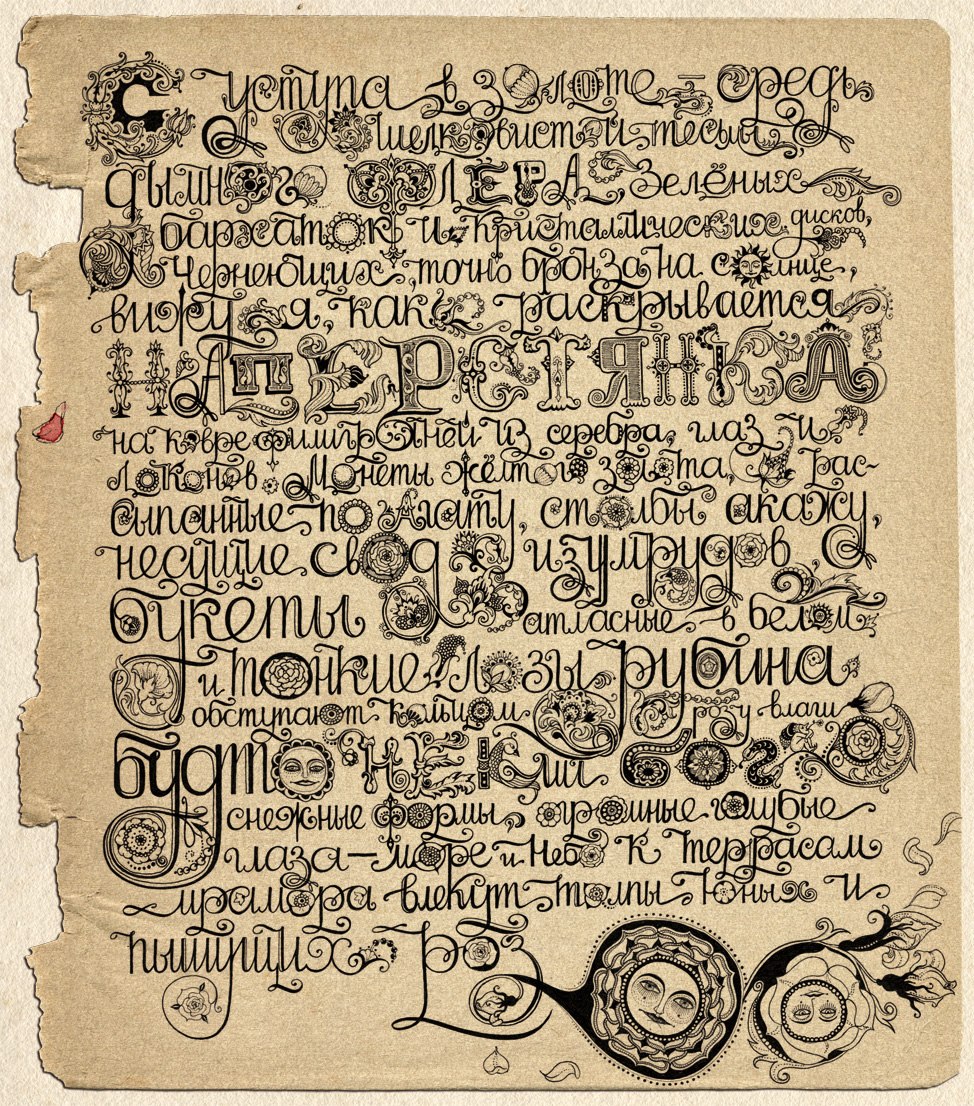 С уступа в золоте – средь
шелковистой тесьмы,
дымного ФЛЕРА, зелёных
бархаток и кристаллических дисков,
чернеющих, точно бронза на солнце,
вижу я, как раскрывается
НАПЕРСТЯНКА
на ковре филиграней из серебра, глаз и
локонов. Монеты жёлтого золота, рас-
сыпанные по агату, столбы акажу,
несущие свод изумрудов,
букеты атласные – в белом
и тонкие лозы рубина
обступают кольцом розу влаги
будто некий бог
снежные формы, огромные голубые
глаза – море и небо к террасам
мрамора влекут толпы юных и
пышущих роз